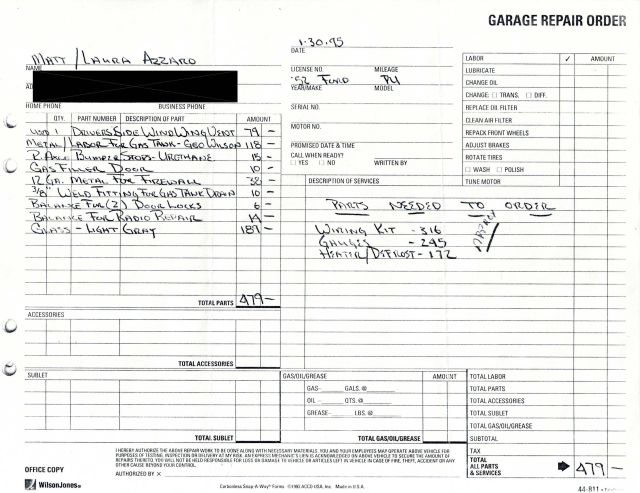 GARAGE REPAIR ORDER
1-30-95
DATE
MATT / LAURA AZZARO
NAME
HOME PHONE BUSINESS PHONE
LICENSE NO. MILEAGE
'52 FORD PU
YEAR/MAKE MODEL
SERIAL NO.
MOTOR NO.
PROMISED DATE & TIME
CALL WHEN READY?
YES NO WRITTEN BY
DESCRIPTION OF SERVICES
LABOR ✓ AMOUNT
LUBRICATE
CHANGE OIL
CHANGE: TRANS. DIFF.
REPLACE OIL FILTER
CLEAN AIR FILTER
REPACK FRONT WHEELS
ADJUST BRAKES
ROTATE TIRES
WASH POLISH
TUNE MOTOR
QTY. PART NUMBER DESCRIPTION OF PART AMOUNT
USED 1 DRIVERS SIDE WIND WING VENT 79 -
METAL/LABOR FOR GAS TANK - GEO WILSON 118 -
R. AXLE BUMPER STOPS - URETHANE 15 -
GAS FILLER DOOR 10 -
12 GA. METAL FOR FIREWALL 38 -
3/8" WELD FITTING FOR GAS TANK DRAIN 10 -
BALANCE FOR (2) DOOR LOCKS 6 -
BALANCE FOR RADIO REPAIR 14 -
GLASS - LIGHT GRAY 189 -
TOTAL PARTS 479 -
PARTS NEEDED TO ORDER
WIRING KIT - 316
GAUGES - 245
HEATER/DEFROST - 172
ACCESSORIES
TOTAL ACCESSORIES
SUBLET AMOUNT
TOTAL SUBLET
GAS/OIL/GREASE AMOUNT
GAS- GALS. @
OIL - QTS. @
GREASE- LBS. @
TOTAL GAS/OIL/GREASE
TOTAL LABOR
TOTAL PARTS
TOTAL ACCESSORIES
TOTAL SUBLET
TOTAL GAS/OIL/GREASE
SUBTOTAL
TAX
TOTAL ALL PARTS & SERVICES 479 -
I HEREBY AUTHORIZE THE ABOVE REPAIR WORK TO BE DONE ALONG WITH NECESSARY MATERIALS. YOU AND YOUR EMPLOYEES MAY OPERATE ABOVE VEHICLE FOR
PURPOSES OF TESTING, INSPECTION OR DELIVERY AT MY RISK. AN EXPRESS MECHANIC'S LIEN IS ACKNOWLEDGED ON ABOVE VEHICLE TO SECURE THE AMOUNT OF
REPAIRS THERETO. YOU WILL NOT BE HELD RESPONSIBLE FOR LOSS OR DAMAGE TO VEHICLE OR ARTICLES LEFT IN VEHICLE IN CASE OF FIRE, THEFT, ACCIDENT OR ANY
OTHER CAUSE BEYOND YOUR CONTROL.
OFFICE COPY
AUTHORIZED BY X
WilsonJones
Carbonless Snap-A-Way® Forms ACCO USA, Inc. Made in U.S.A.
44-811